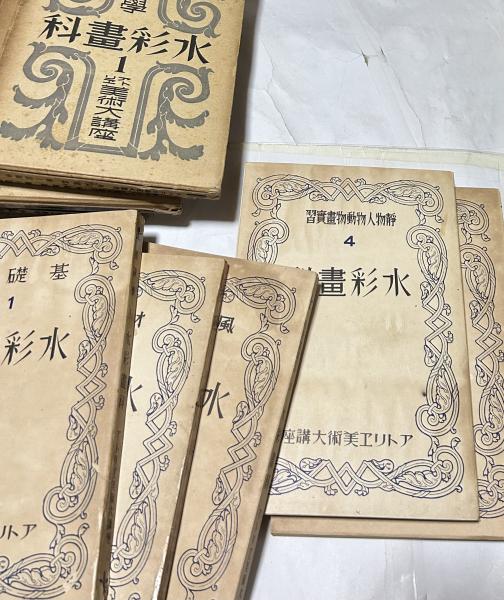 學
水彩畫科
1
アトリヱ美術大講座
靜物人物動物畫實習
4
水彩畫
アトリヱ美術大講座
基礎
1
水彩
アトリヱ
水
風
水